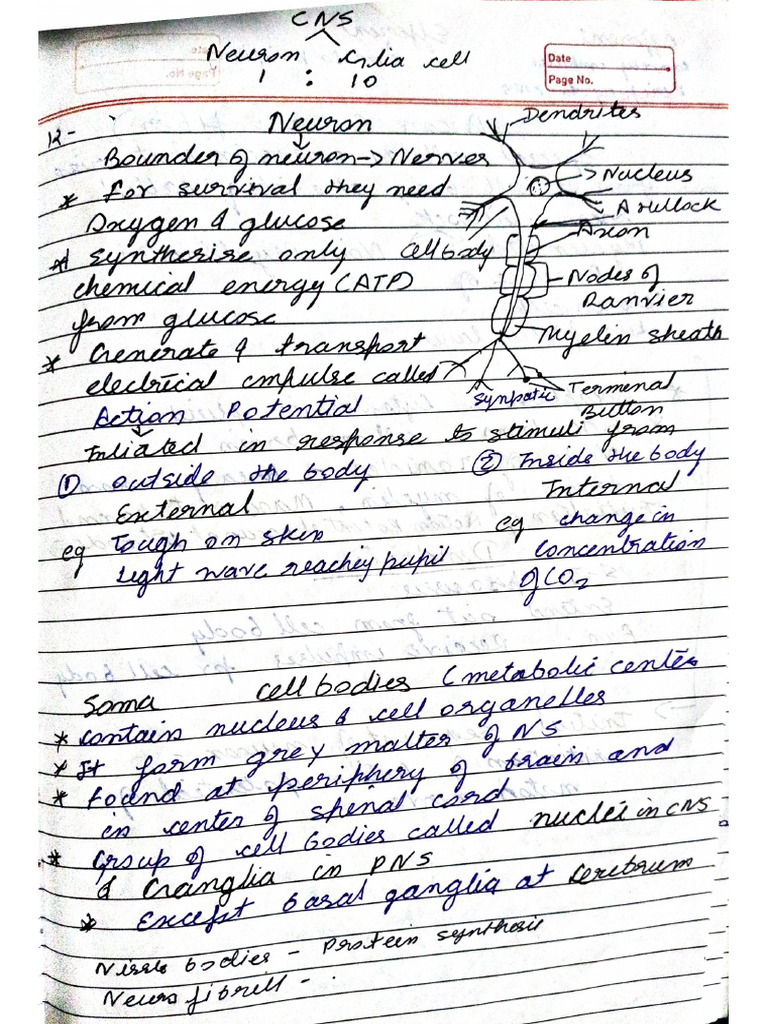 CNS
Neuron Glia cell
1 : 10
Date
Page No.
12-
Neuron
Bounder of neuron -> Nerves
* For survival they need
Oxygen & glucose
* Syntherise only
chemical energy (ATP)
from glucose
* Generate & transport
electrical impulse called
Action Potential
Initiated in response to stimuli from
① outside the body ② Inside the body
External Internal
eg Tough on skin eg change in
Light wave reachey pupil concentration
of CO2
Dendrites
Nucleus
Axon
Cell body
Nodes of
Ranvier
Myelin sheath
Synpatic
Terminal
Button
Soma cell bodies (metabolic center
* contain nucleus & cell organelles
* It form grey matter of NS
* Found at periphery of brain and
in center of spinal cord
* Group of cell bodies called nuclei in CNS
& Ganglia in PNS
* Except basal ganglia at cerebrum
Nissle bodies - Protein synthesis
Neuro fibrill -